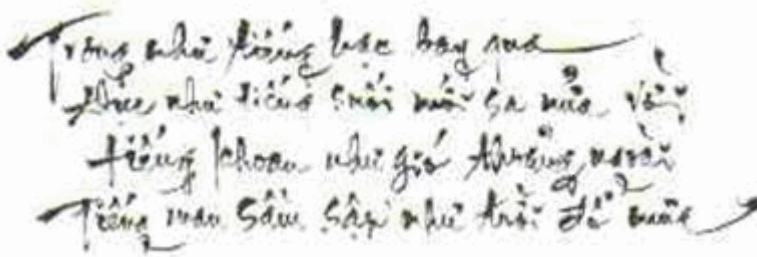 Trong như tiếng hạc bay qua
Đục như tiếng suối mới sa nửa vời
Tiếng khoan như gió thoảng ngoài
Tiếng mau sầm sập như trời đổ mưa